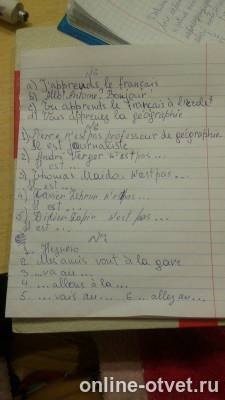 a) J'apprends le français
b) Allô Antoine, Bonjour
c) Tu apprends le français à l'école?
d) Vous apprenez la géographie
№2
1) Pierre n'est pas professeur de géographie
Il est journaliste
2) André Verger n'est pas ...
Il est ...
3) Thomas n'est pas ...
Il est ...
4) Xavier n'est pas ...
Il est ...
5) Didier n'est pas ...
Il est ...
№3
1.
2. Mes amis vont à la gare
3. ... va au ...
4. ... allons à la ...
5. ... vais au ... 6. .. allez au ...
online-otvet.ru